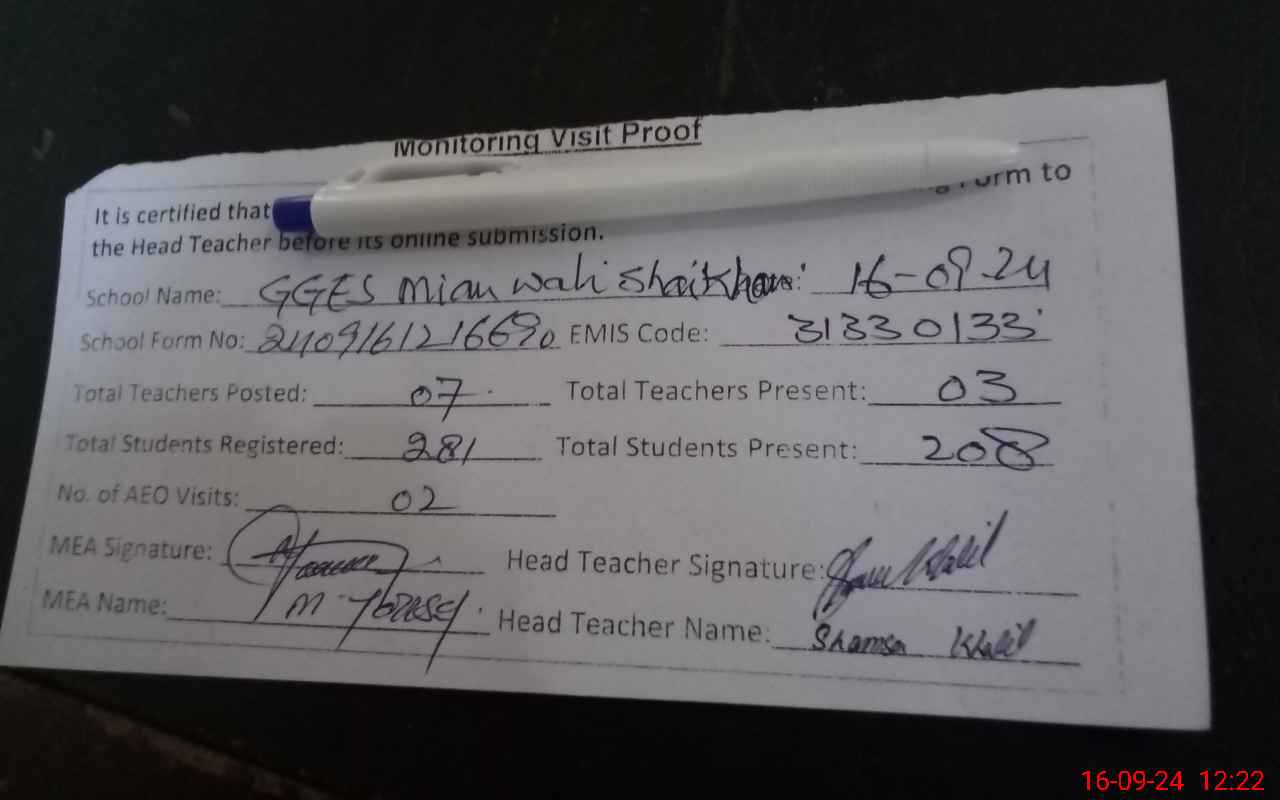 Monitoring Visit Proof
It is certified that
the Head Teacher before its online submission.
School Name: GGES Mian wali Shaikhan 16-09-24
School Form No: EMIS Code: 31330133
Total Teachers Posted: 07 Total Teachers Present: 03
Total Students Registered: 281 Total Students Present: 208
No. of AEO Visits: 02
MEA Signature: Head Teacher Signature:
MEA Name: Head Teacher Name: Shamsa Khalil
16-09-24 12:22